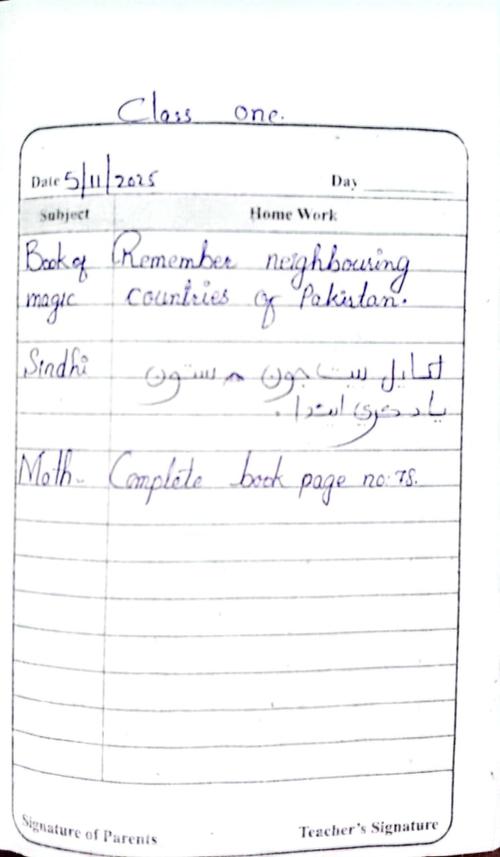 Class one.
Date 5/11/2025 Day
Subject Home Work
Book of Remember neighbouring
magic countries of Pakistan.
Sindhi
ياد ڪري ايندا.
Math. Complete book page no: 78.
Signature of Parents Teacher's Signature